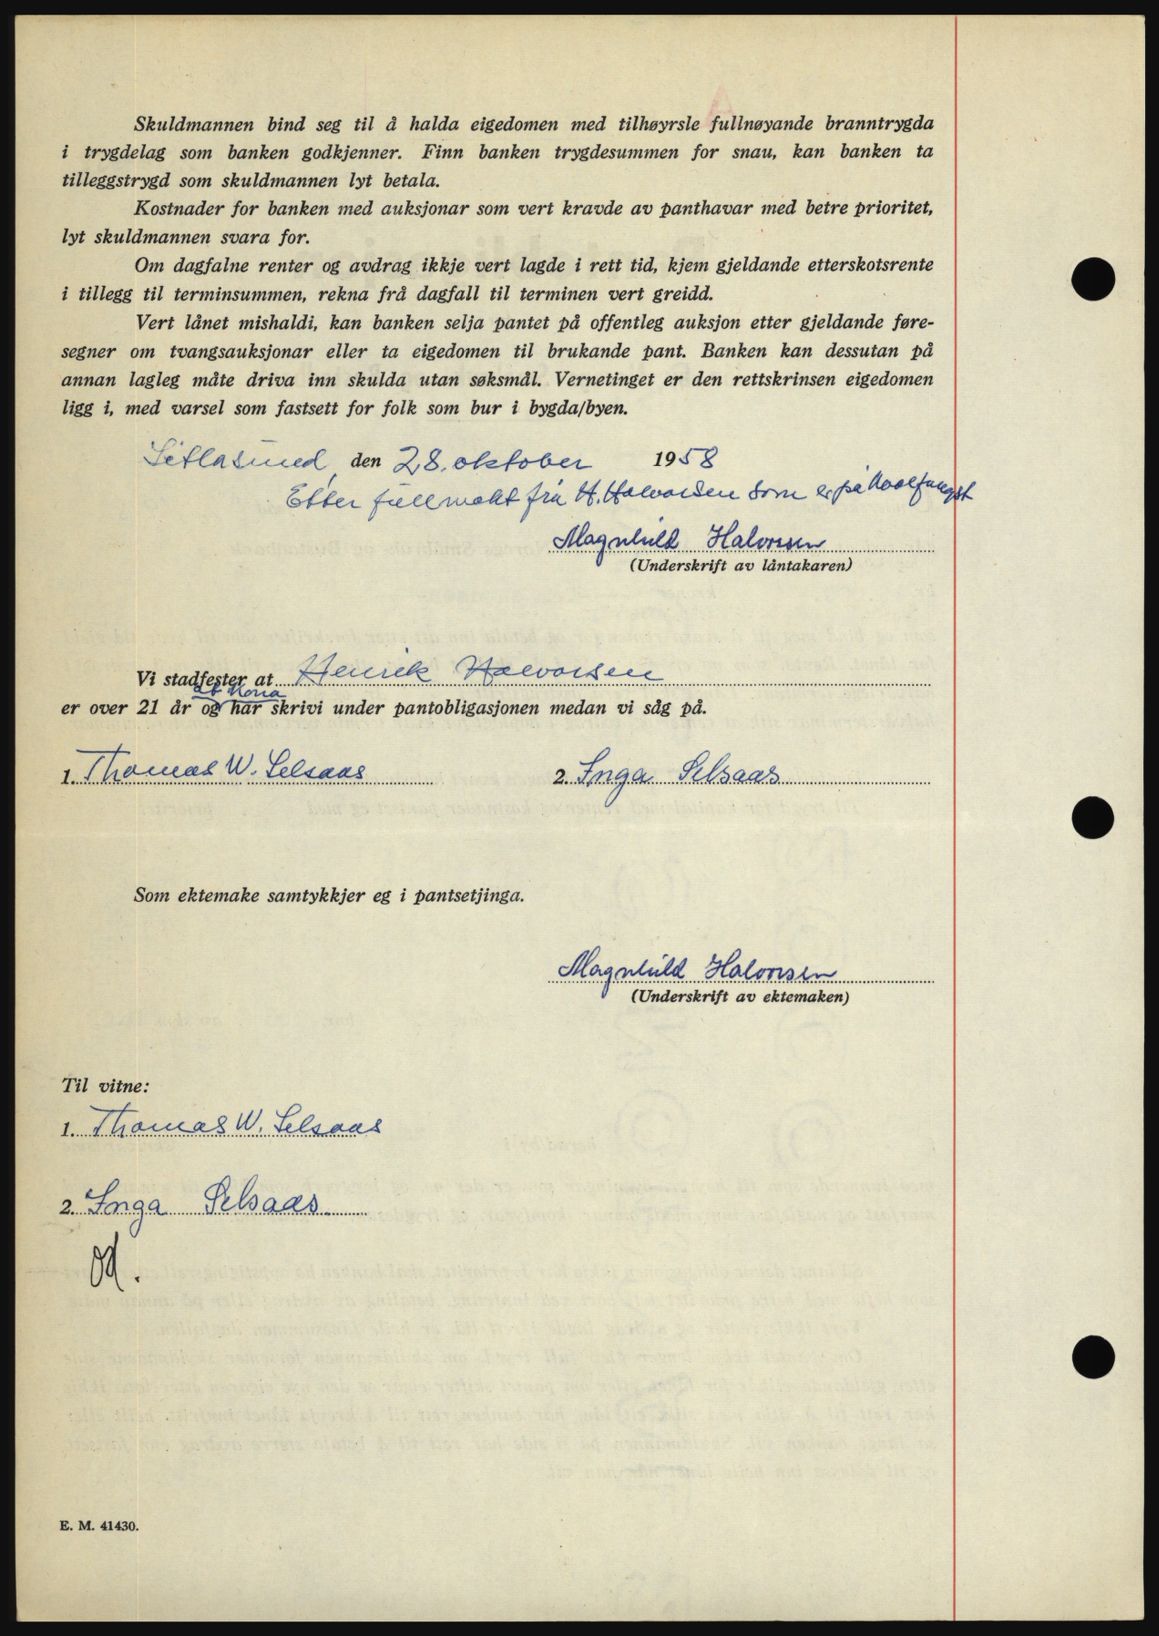 Skuldmannen bind seg til å halda eigedomen med tilhøyrsle fullnøyande branntrygda
i trygdelag som banken godkjenner. Finn banken trygdesummen for snau, kan banken ta
tilleggstrygd som skuldmannen lyt betala.
Kostnader for banken med auksjonar som vert kravde av panthavar med betre prioritet,
lyt skuldmannen svara for.
Om dagfalne renter og avdrag ikkje vert lagde i rett tid, kjem gjeldande etterskotsrente
i tillegg til terminsummen, rekna frå dagfall til terminen vert greidd.
Vert lånet mishaldi, kan banken selja pantet på offentleg auksjon etter gjeldande føre-
segner om tvangsauksjonar eller ta eigedomen til brukande pant. Banken kan dessutan på
annan lagleg måte driva inn skulda utan søksmål. Vernetinget er den rettskrinsen eigedomen
ligg i, med varsel som fastsett for folk som bur i bygda/byen.
den 28. oktober 1958
Etter fullmakt fra H. Halvorsen som er på kvalfangst
Magnhild Halvorsen
(Underskrift av låntakaren)
Vi stadfester at Henrik Halvorsen
at kona
er over 21 år og har skrivi under pantobligasjonen medan vi såg på.
1. Thomas W. Selsaas 2. Inga Selsaas
Som ektemake samtykkjer eg i pantsetjinga.
Magnhild Halvorsen
(Underskrift av ektemaken)
Til vitne:
1. Thomas W. Selsaas
2. Inga Selsaas
E. M. 41430.